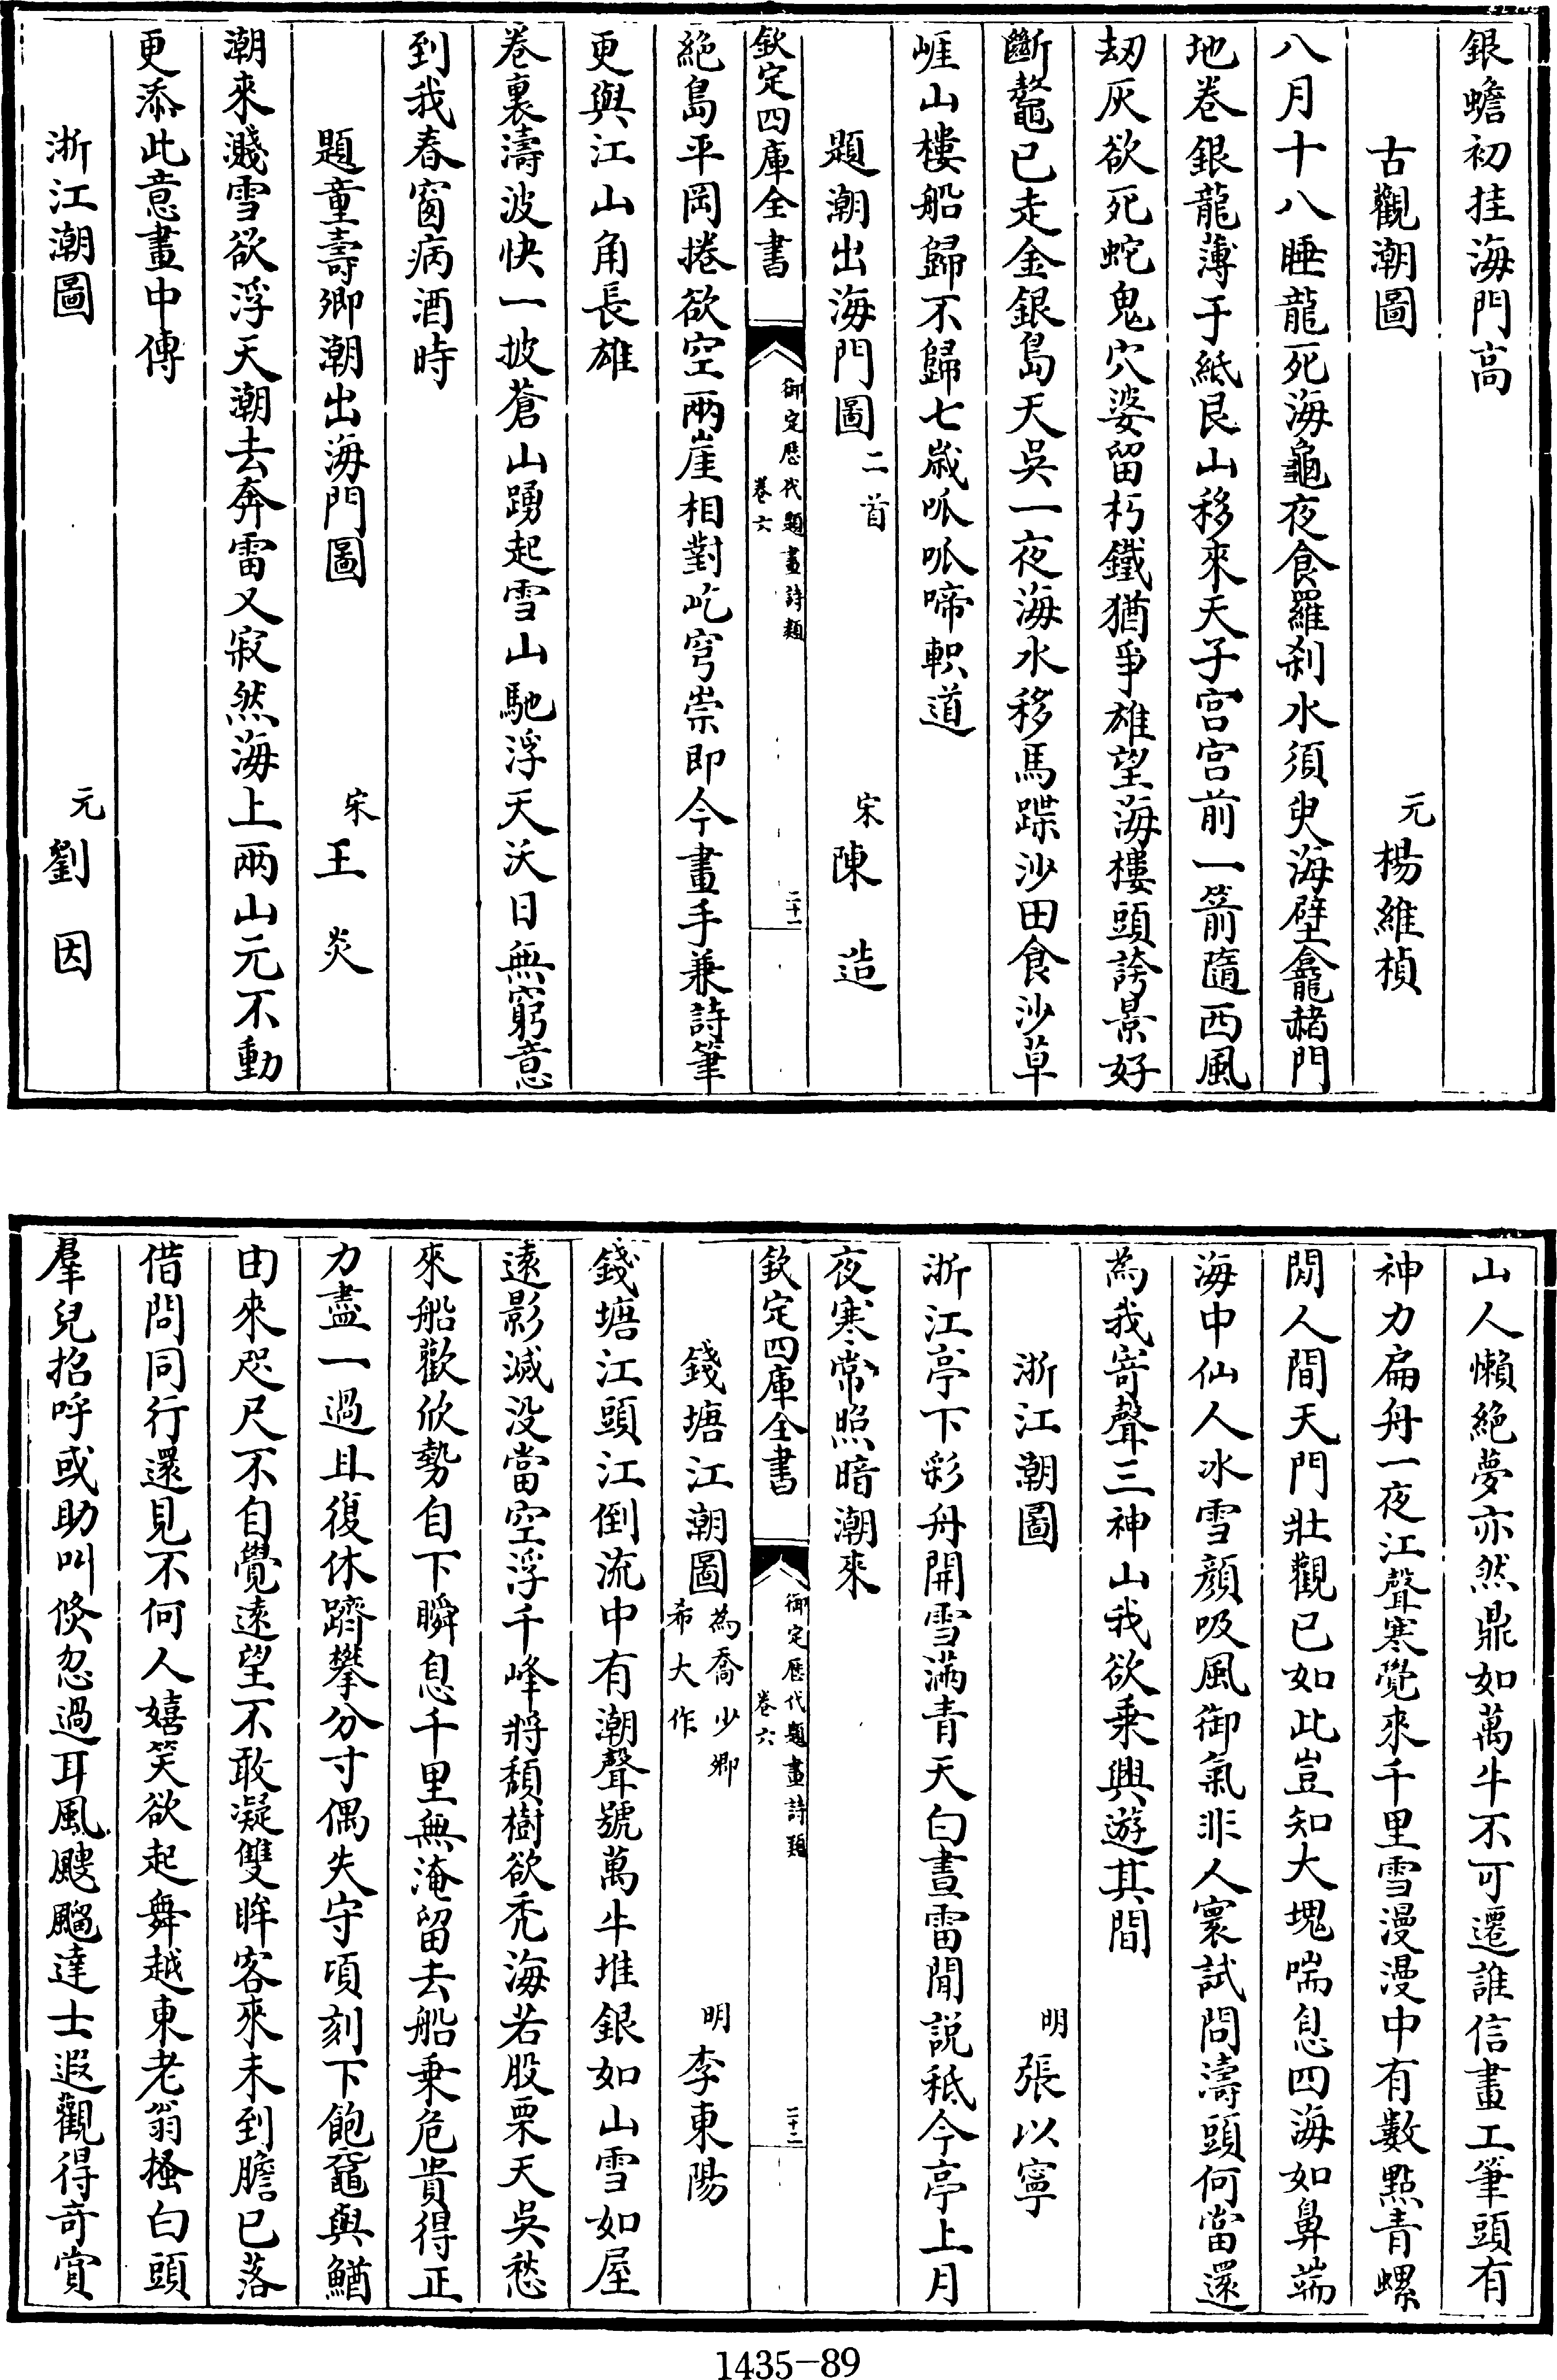 銀蟾初挂海門高
古觀潮圖 元 楊維楨
八月十八睡龍死海龜夜食羅刹水須臾海壁龕赭門
地卷銀龍薄于紙艮山移來天子宫宫前一箭隨西風
刼灰欲死蛇鬼穴婆留朽鐵猶爭雄望海樓頭誇景好
斷鼇已走金銀島天吳一夜海水移馬蹀沙田食沙草
崕山樓船歸不歸七歳呱呱啼軹道
題潮出海門圖 二首 宋 陳造
欽定四庫全書 御定歴代題畫詩類 卷六 二十一
絶島平岡捲欲空兩崖相對屹穹崇即今畫手兼詩筆
更與江山角長雄
卷裏濤波快一披蒼山踴起雪山馳浮天沃日無窮意
到我春窗病酒時
題童壽卿潮出海門圖 宋 王炎
潮來濺雪欲浮天潮去奔雷又寂然海上兩山元不動
更添此意畫中傳
浙江潮圖 元 劉因
山人懶絶夢亦然鼎如萬牛不可遷誰信畫工筆頭有
神力扁舟一夜江聲寒覺來千里雪漫漫中有數點青螺
閒人間天門壯觀已如此豈知大塊喘息四海如鼻端
海中仙人冰雪顔吸風御氣非人寰試問濤頭何當還
為我寄聲三神山我欲乘興遊其間
浙江潮圖 明 張以寧
浙江亭下彩舟開雪滿青天白晝雷聞説秪今亭上月
夜寒常照暗潮來
欽定四庫全書 御定歴代題畫詩類 卷六 二十二
錢塘江潮圖 為喬少卿希大作 明 李東陽
錢塘江頭江倒流中有潮聲號萬牛堆銀如山雪如屋
遠影滅没當空浮千峰將頽樹欲禿海若股栗天吳愁
來船歡欣勢自下瞬息千里無淹留去船乗危貴得正
力盡一過且復休躋攀分寸偶失守頃刻下飽黿與鰌
由來咫尺不自覺遠望不敢凝雙眸客來未到膽已落
借問同行還見不何人嬉笑欲起舞越東老翁搔白頭
羣兒招呼或助叫倐忽過耳風颼飀達士遐觀得奇賞
1435-89